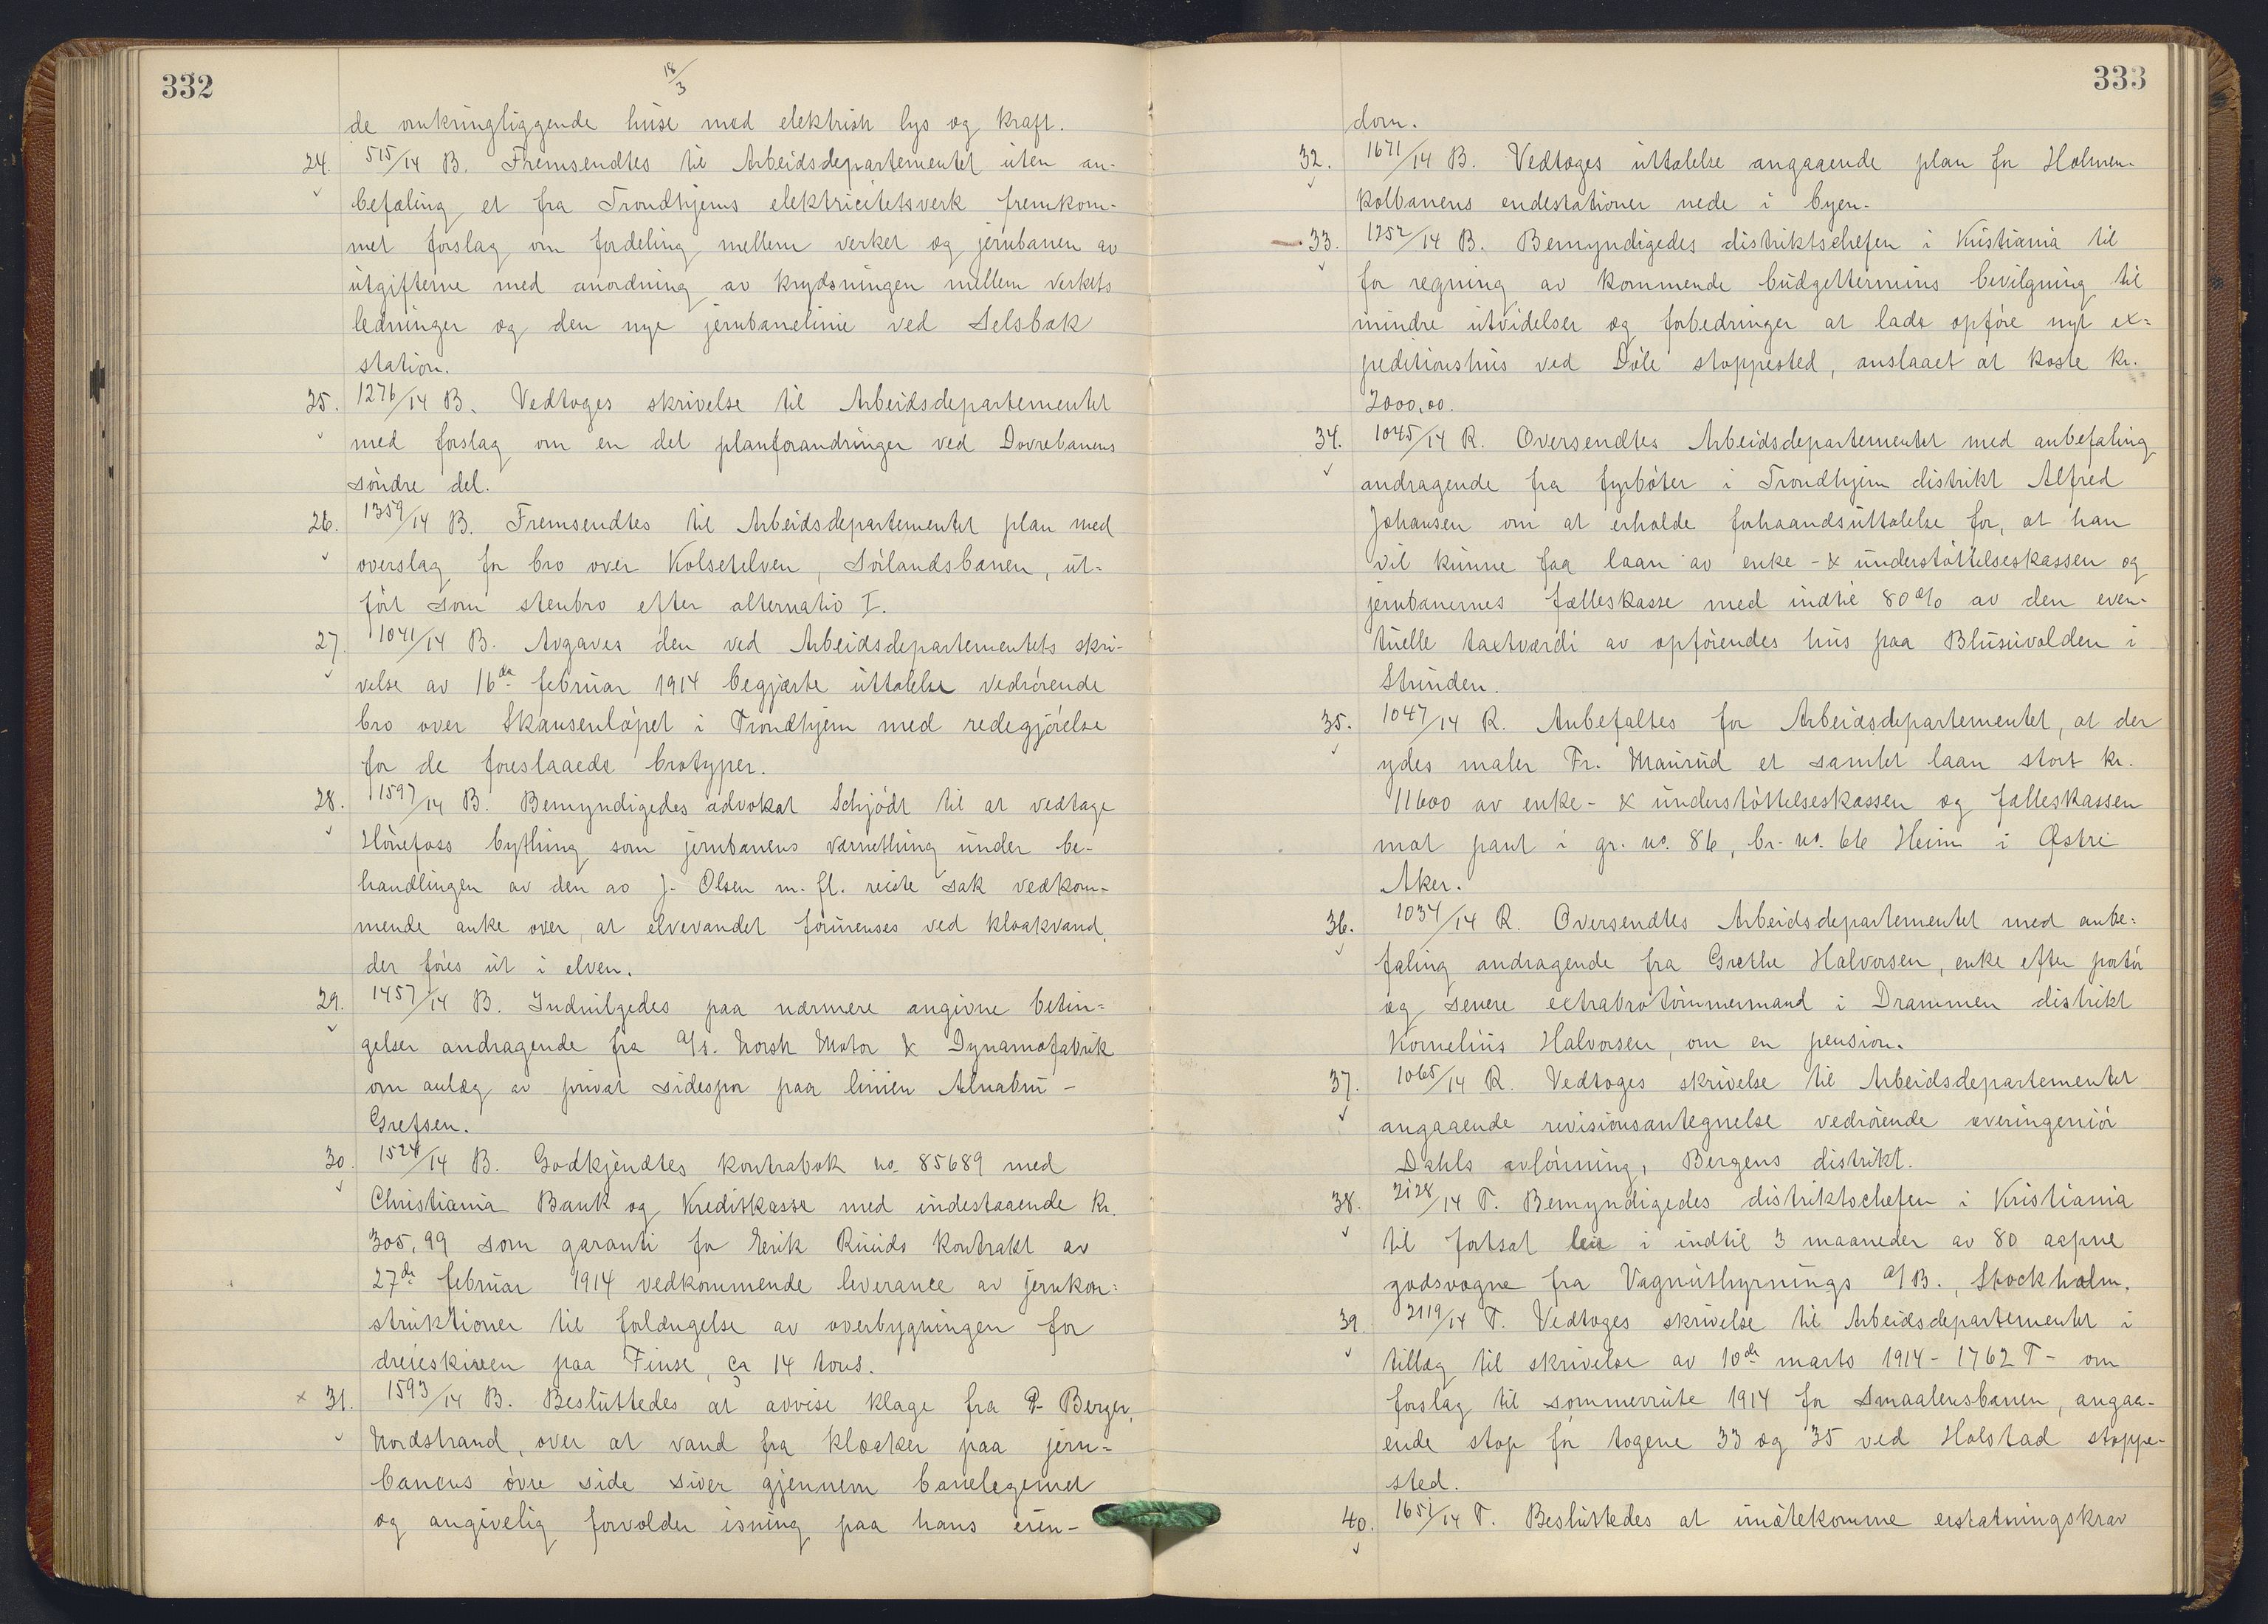 332
18/3
de omkringliggende huse med elektrisk lys og kraft.
24. 515/14 B. Fremsendtes til Arbeidsdepartementet uten an-
befaling et fra Trondhjems elektricitetsverk fremkom-
met forslag om fordeling mellem verket og jernbanen av
utgifterne med anordning av krydsningen mellem verkets
ledninger og den nye jernbanelinie ved Selsbak
station.
25. 1276/14 B. Vedtoges skrivelse til Arbeidsdepartementet
med forslag om en del planforandringer ved Dovrebanens
søndre del.
26. 1359/14 B. Fremsendtes til Arbeidsdepartementet plan med
overslag for bro over Kolsetelven, Sørlandsbanen, ut-
ført som stenbro efter alternativ I.
27. 1041/14 B. Avgaves den ved Arbeidsdepartementets skri-
velse av 16de februar 1914 begjærte uttalelse vedrørende
bro over Skansenløpet i Trondhjem med redegjørelse
for de foreslaaede brotyper.
28. 1597/14 B. Bemyndigedes advokat Schjødt til at vedtage
Hønefoss bything som jernbanens værnething under be-
handlingen av den av J. Olsen m. fl. reiste sak vedkom-
mende anke over, at elvevandet forurenses ved kloakvand,
der føres ut i elven.
29. 1457/14 B. Indvilgedes paa nærmere angivne betin-
gelser andragende fra A/S. Norsk Motor & Dynamofabrik
om anlæg av privat sidespor paa linien Alnabru -
Grefsen.
30. 1524/14 B. Godkjendtes kontrabok no. 85689 med
Christiania Bank og Kreditkasse med indestaaende kr.
305,99 som garanti for Erik Ruuds kontrakt av
27de februar 1914 vedkommende leverance av jernkon-
struktioner til forlængelse av overbygningen for
dreieskiven paa Finse, ca 14 tons.
x 31. 1593/14 B. Besluttedes at avvise klage fra P. Berger,
Nordstrand, over at vand fra kloaker paa jern-
banens øvre side siver gjennem banelegemet
og angivelig forvolder isning paa hans eien-
333
dom.
32. 1671/14 B. Vedtoges uttalelse angaaende plan for Holmen-
kolbanens endestationer nede i byen.
33. 1252/14 B. Bemyndigedes distriktschefen i Kristiania til
for regning av kommende budgettermins bevilgning til
mindre utvidelser og forbedringer at lade opføre nyt ex-
peditionshus ved Døle stoppested, anslaaet at koste kr.
2000,00.
34. 1045/14 R. Oversendtes Arbeidsdepartementet med anbefaling
andragende fra fyrbøter i Trondhjem distrikt Alfred
Johansen om at erholde forhaandsuttalelse for, at han
vil kunne faa laan av enke- & understøttelseskassen og
jernbanernes fælleskasse med indtil 80 % av den even-
tuelle taxtværdi av opførendes hus paa Blusuvolden i
Strinden.
35. 1047/14 R. Anbefaltes for Arbeidsdepartementet, at der
ydes maler Fr. Maurud et samlet laan stort kr.
11600 av enke- & understøttelseskassen og fælleskassen
mot pant i gr. no. 86, br. no. 66 Heim i Østre
Aker.
36. 1034/14 R. Oversendtes Arbeidsdepartementet med anbe-
faling andragende fra Grethe Halvorsen, enke efter portør
og senere extrabrotømmermand i Drammen distrikt
Kornelius Halvorsen, om en pension.
37. 1065/14 R. Vedtoges skrivelse til Arbeidsdepartementet
angaaende revisionsantegnelse vedrørende overingeniør
Dahls avlønning, Bergens distrikt.
38. 2128/14 T. Bemyndigedes distriktschefen i Kristiania
til fortsat leie i indtil 3 maaneder av 80 aapne
godsvogne fra Vagnuthyrnings A/B., Stockholm.
39. 2119/14 T. Vedtoges skrivelse til Arbeidsdepartementet i
tillæg til skrivelse av 10de marts 1914 - 1762 T - om
forslag til sommerrute 1914 for Smaalensbanen, angaa-
ende stop for togene 33 og 35 ved Holstad stoppe-
sted.
40. 1651/14 T. Besluttedes at imøtekomme erstatningskrav